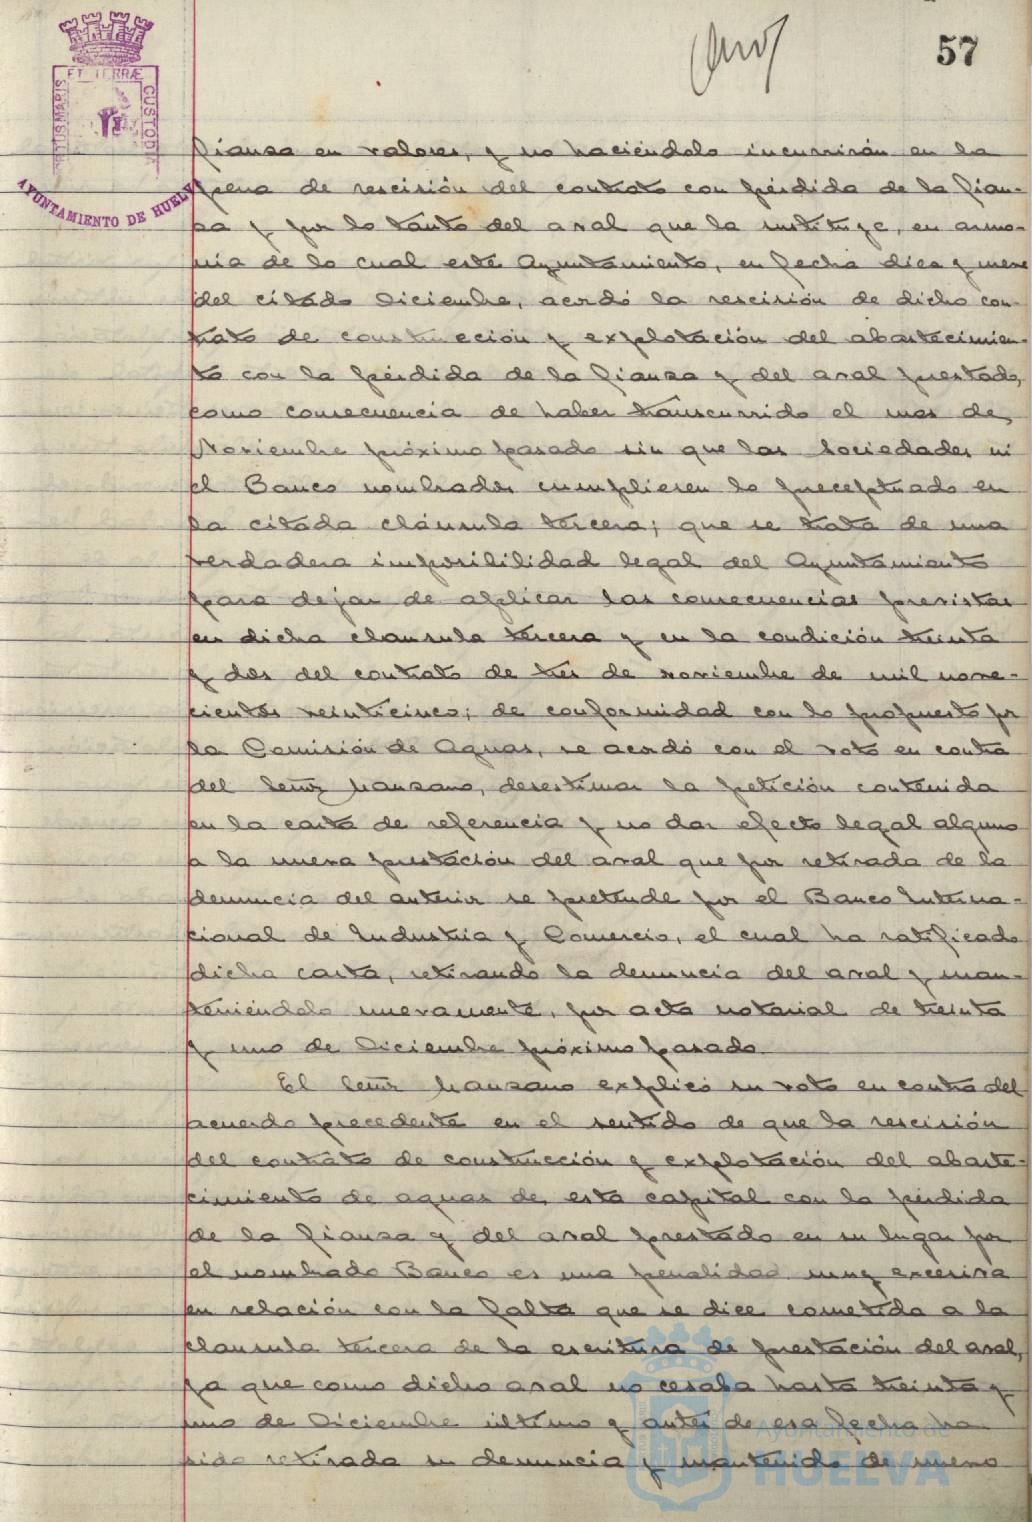 57
PORTUS MARIS ET TERRÆ CUSTODIA
AYUNTAMIENTO DE HUELVA
fianza en valores, y no haciéndolo incurrirán en la
pena de rescisión del contrato con pérdida de la fian-
za y por lo tanto del aval que la sustituye, en armo-
nía de lo cual este Ayuntamiento, en fecha diez y nueve
del citado Diciembre, acordó la rescisión de dicho con-
trato de construcción y explotación del abastecimien-
to con la pérdida de la fianza y del aval prestado,
como consecuencia de haber transcurrido el mes de
Noviembre próximo pasado sin que las Sociedades ni
el Banco nombrados cumpliesen lo preceptuado en
la citada cláusula tercera; que se trata de una
verdadera imposibilidad legal del Ayuntamiento
para dejar de aplicar las consecuencias previstas
en dicha clausula tercera y en la condición treinta
y dos del contrato de tres de noviembre de mil nove-
cientos veinticinco; de conformidad con lo propuesto por
la Comisión de Aguas, se acordó con el voto en contra
del Señor Manzano, desestimar la petición contenida
en la carta de referencia y no dar efecto legal alguno
a la nueva prestación del aval que por retirada de la
denuncia del anterior se pretende por el Banco Interna-
cional de Industria y Comercio, el cual ha ratificado
dicha carta, retirando la denuncia del aval y man-
teniéndolo nuevamente, por acta notarial de treinta
y uno de Diciembre próximo pasado.
El Señor Manzano explicó su voto en contra del
acuerdo precedente en el sentido de que la rescisión
del contrato de construcción y explotación del abaste-
cimiento de aguas de esta capital con la pérdida
de la fianza y del aval prestado en su lugar por
el nombrado Banco es una penalidad muy excesiva
en relación con la falta que se dice cometida a la
clausula tercera de la escritura de prestación del aval,
ya que como dicho aval no cesaba hasta treinta y
uno de Diciembre último y antes de esa fecha ha
sido retirada su denuncia y mantenido de nuevo
Ayuntamiento de
HUELVA